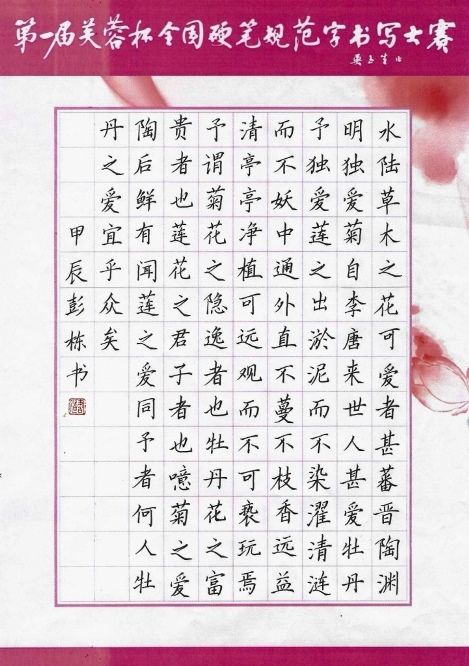 第一届芙蓉杯全国硬笔规范字书写大赛
水陆草木之花可爱者甚蕃晋陶渊
明独爱菊自李唐来世人甚爱牡丹
予独爱莲之出淤泥而不染濯清涟
而不妖中通外直不蔓不枝香远益
清亭亭净植可远观而不可亵玩焉
予谓菊花之隐逸者也牡丹花之富
贵者也莲花之君子者也噫菊之爱
陶后鲜有闻莲之爱同予者何人牡
丹之爱宜乎众矣
甲辰彭栋书